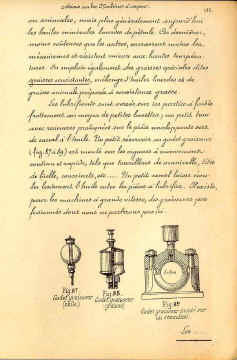 ou animales, mais plus généralement aujourd'hui
les huiles minérales lourdes de pétrole. Ces dernières,
moins coûteuses que les autres, encrassent moins les
mécanismes et résistent mieux aux hautes tempéra-
tures. On emploie également des graisses spéciales dites
graisses consistantes, mélange d'huiles lourdes et de
graisse animale préparée à consistance grasse.
Les lubrifiants sont versés sur les parties à frotte
frottement au moyen de petites burettes; un petit trou
avec rainures pratiquées sur la pièce enveloppante sert
de canal à l'huile. Un petit réservoir ou godet graisseur
(fig. 87 à 89) est monté sur les organes à mouvement
continu et rapide, tels que tourillons de manivelle, tête
de bielle, coussinets, etc.... Un petit canal laisse s'écou-
ler lentement l'huile entre les pièces à lubrifier. Il existe,
pour les machines à grande vitesse, des graisseurs per-
fectionnés dont nous ne parlerons pas ici.
Fig. 87
Godet graisseur
(huile)
Fig. 88
Godet graisseur
(graisse)
Fig. 89
Godet graisseur monté sur
un coussinet
Les